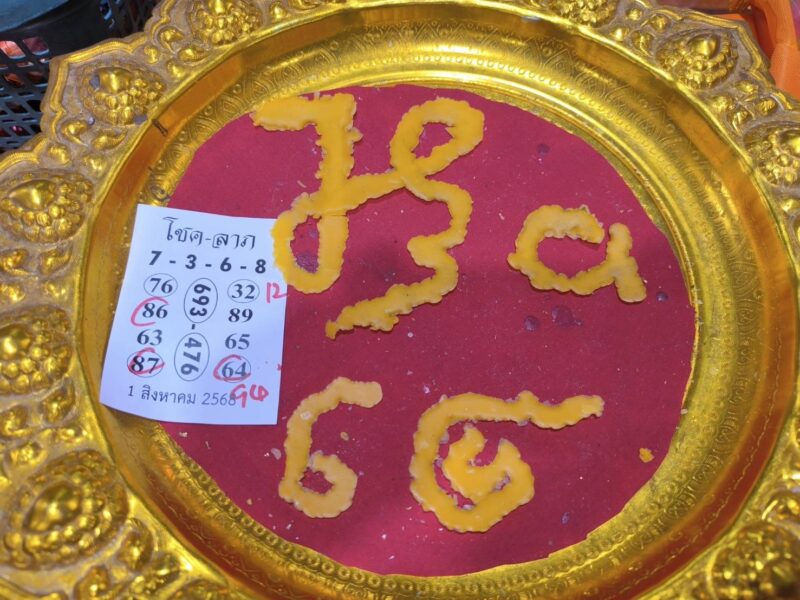 โชค-ลาภ
7 - 3 - 6 - 8
76 693 - 476 32 12
86 89
63 65
87 64
1 สิงหาคม 2568
๑
๖ ๔